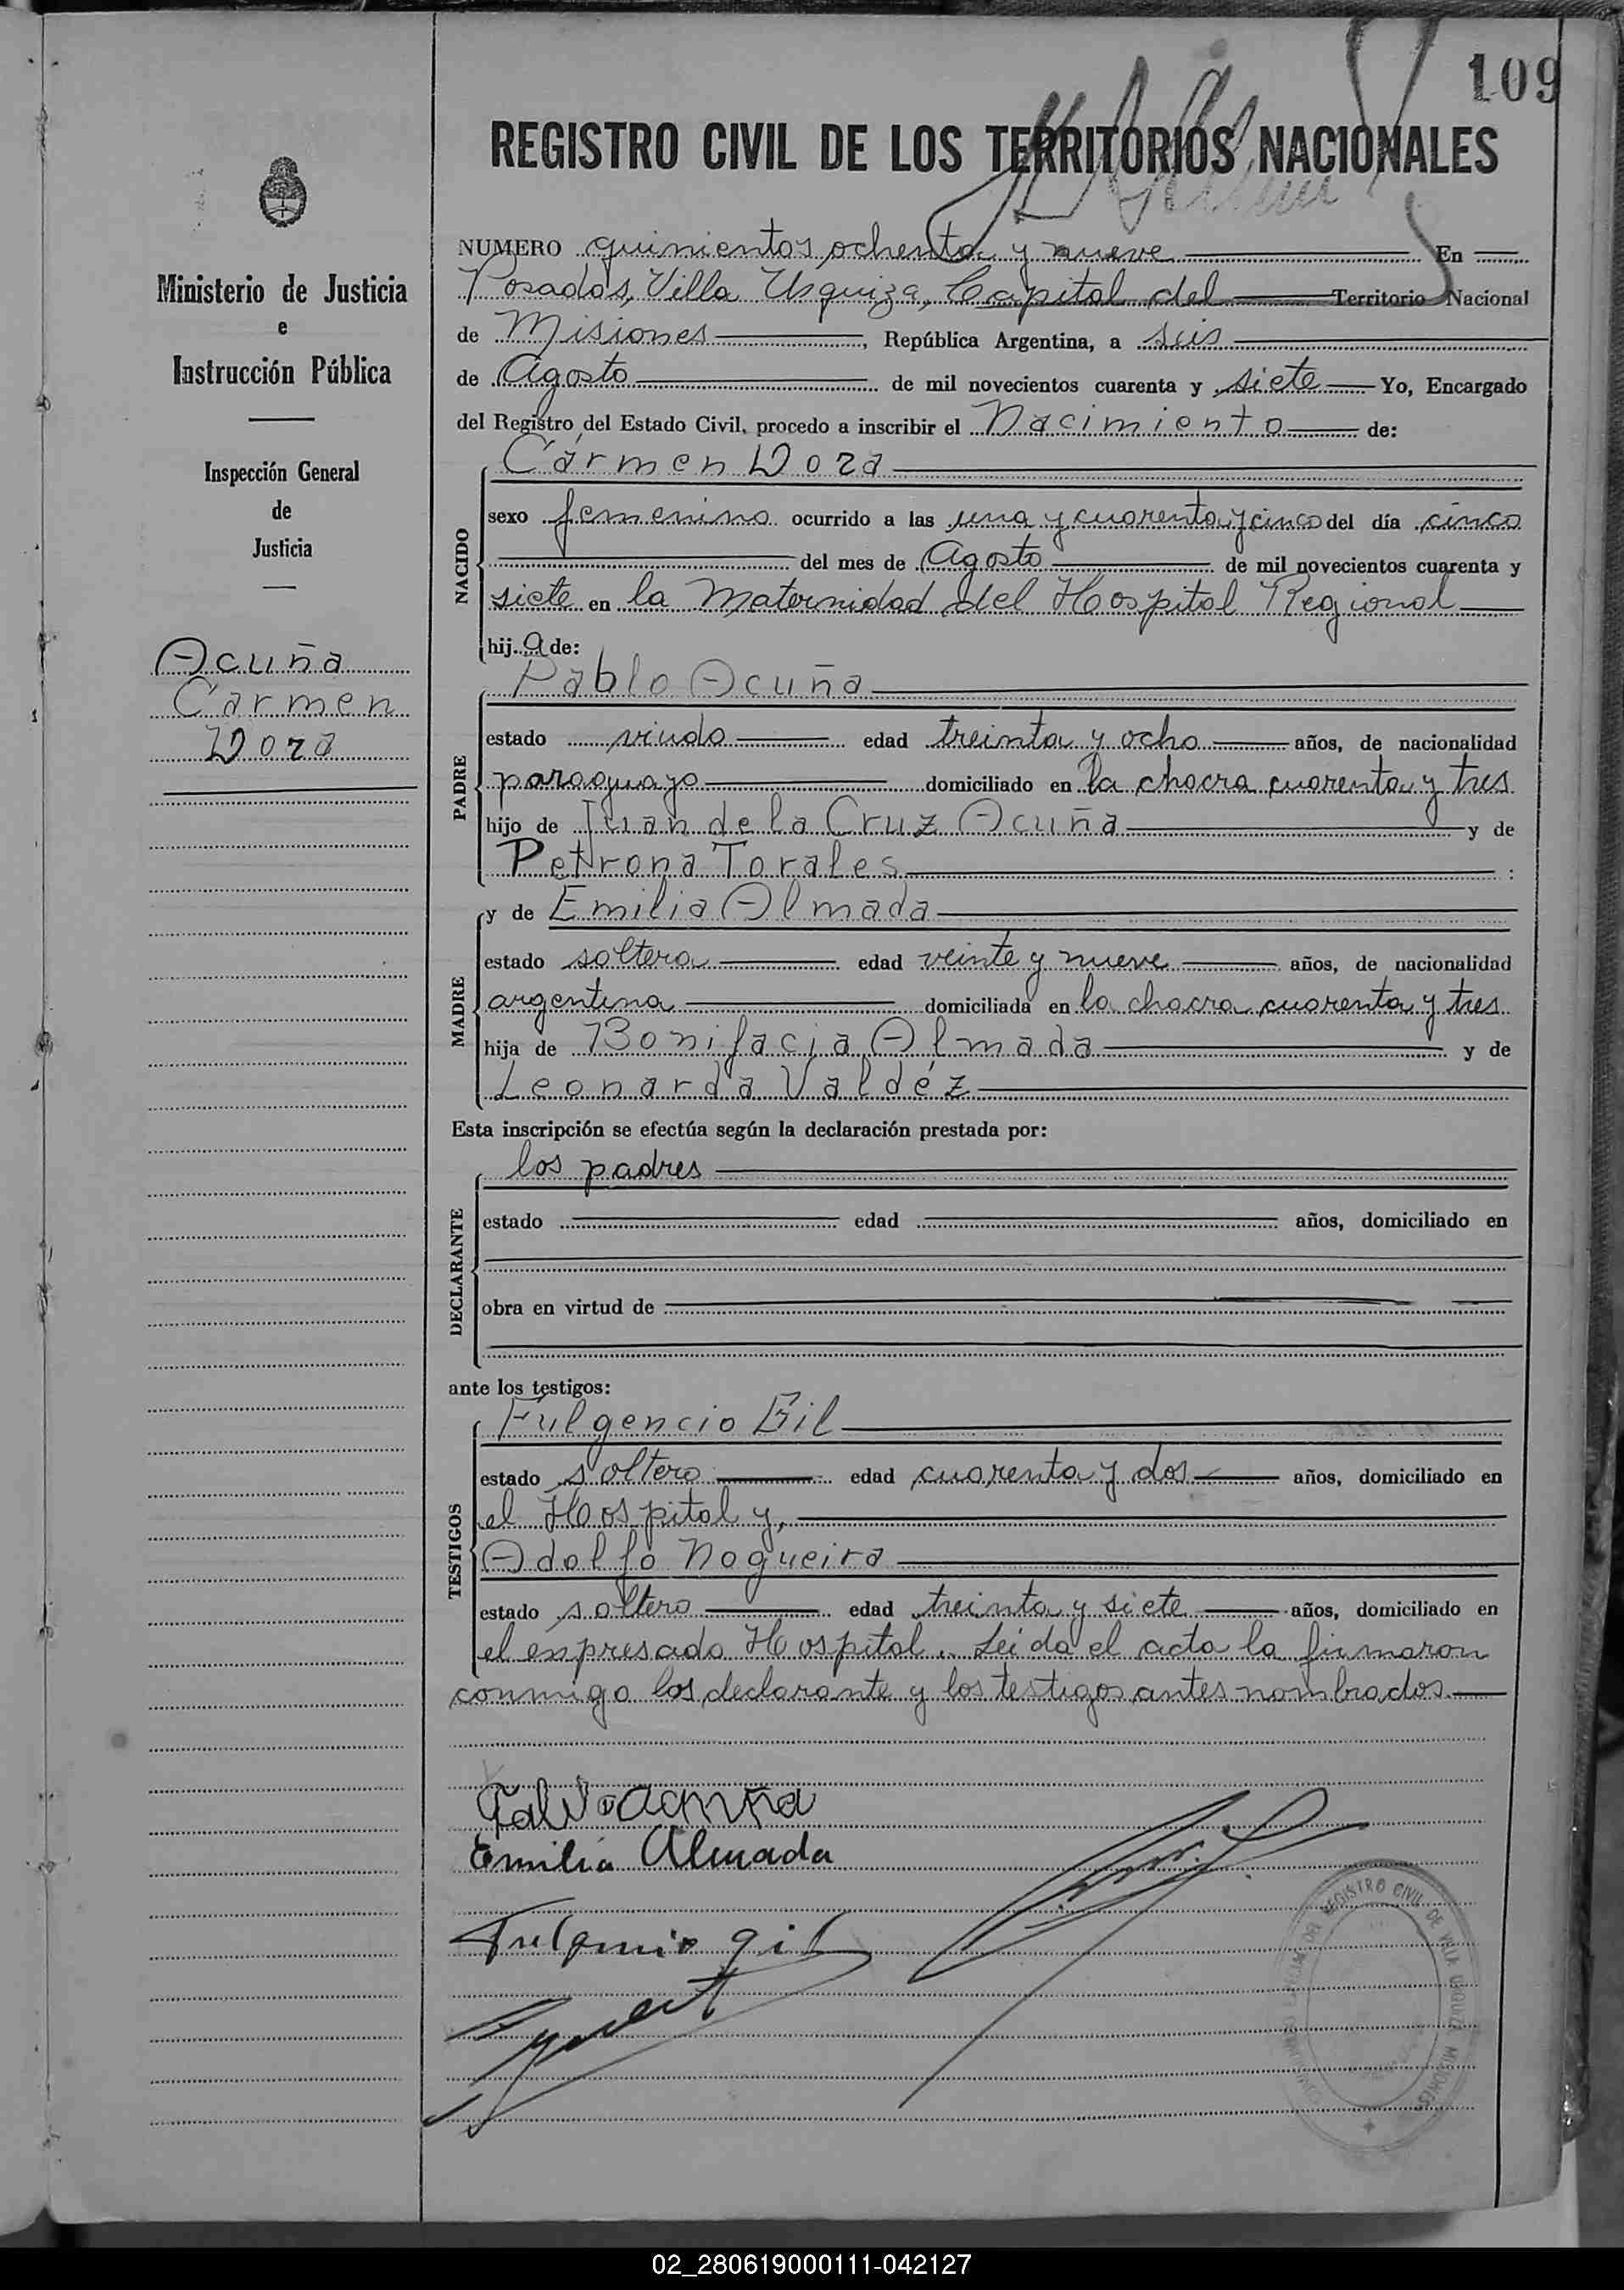 109
REGISTRO CIVIL DE LOS TERRITORIOS NACIONALES
Ministerio de Justicia
e
Instrucción Pública
Inspección General
de
Justicia
Acuña
Carmen
Dora
NUMERO quinientos ochenta y nueve En
Posadas, Villa Urquiza, Capital del Territorio Nacional
de Misiones, República Argentina, a seis
de Agosto de mil novecientos cuarenta y siete Yo, Encargado
del Registro del Estado Civil, procedo a inscribir el Nacimiento de:
NACIDO
Cármen Dora
sexo femenino ocurrido a las una y cuarenta y cinco del día cinco
del mes de Agosto de mil novecientos cuarenta y
siete en la Maternidad del Hospital Regional
hij a de:
PADRE
Pablo Acuña
estado viudo edad treinta y ocho años, de nacionalidad
paraguayo domiciliado en la chacra cuarenta y tres
hijo de Juan de la Cruz Acuña y de
Petrona Torales :
MADRE
y de Emilia Almada
estado soltera edad veinte y nueve años, de nacionalidad
argentina domiciliada en la chacra cuarenta y tres
hija de Bonifacia Almada y de
Leonarda Valdéz
Esta inscripción se efectúa según la declaración prestada por:
DECLARANTE
los padres
estado edad años, domiciliado en
obra en virtud de
ante los testigos:
TESTIGOS
Fulgencio Gil
estado soltero edad cuarenta y dos años, domiciliado en
el Hospital y,
Adolfo Nogueira
estado soltero edad treinta y siete años, domiciliado en
el expresado Hospital. Leida el acta la firmaron
conmigo los declarante y los testigos antes nombrados.
Pablo Acuña
Emilia Almada
Fulgencio Gil
REGISTRO CIVIL DE VILLA URQUIZA MISIONES
02_280619000111-042127